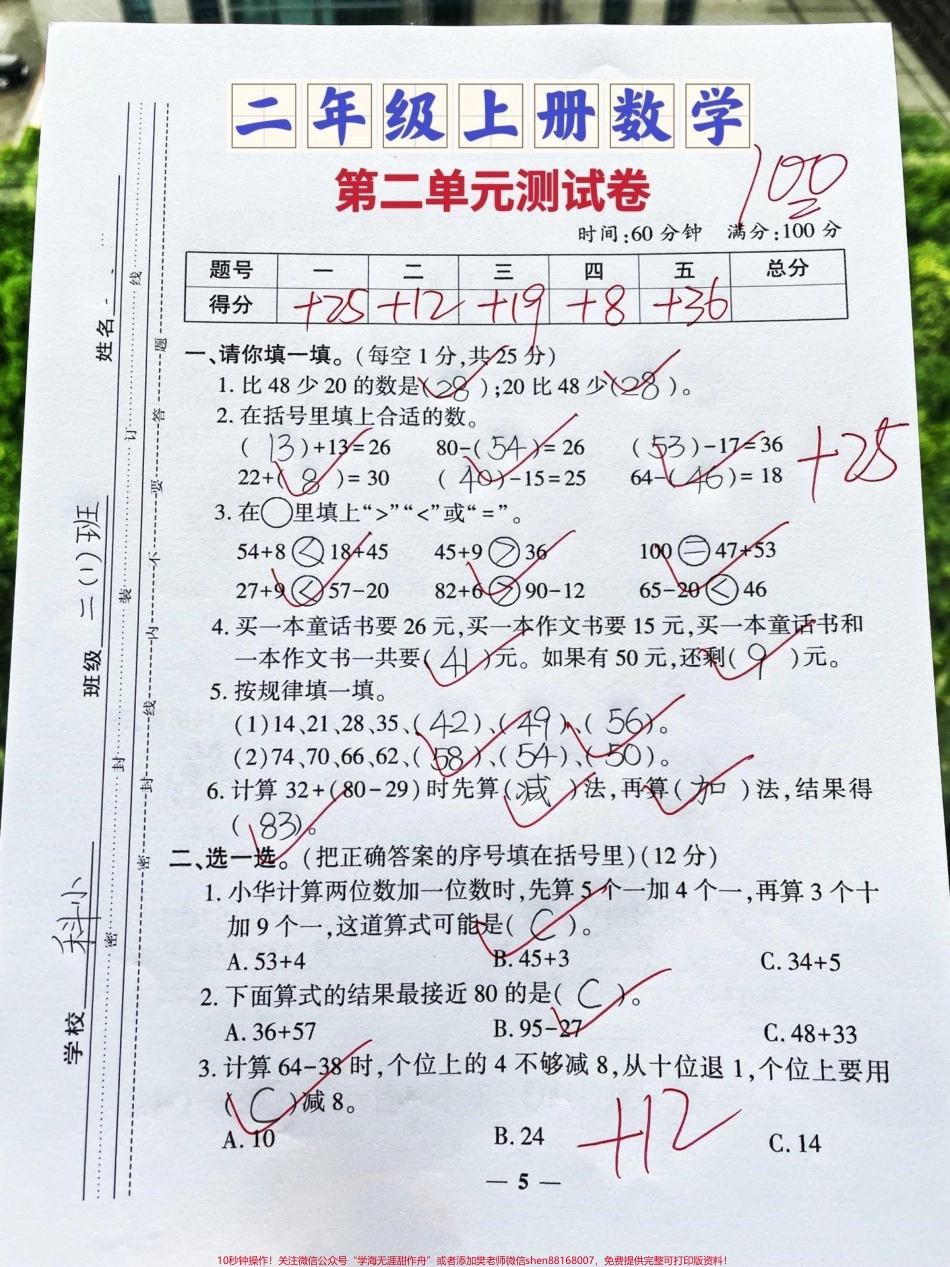 二年级上册数学
第二单元测试卷
100
时间:60分钟 满分:100分
题号 一 二 三 四 五 总分
得分 +25 +12 +19 +8 +36
一、请你填一填。(每空1分,共25分)
1.比48少20的数是(28);20比48少(28)。
2.在括号里填上合适的数。
(13)+13=26 80-(54)=26 (53)-17=36
22+(8)=30 (40)-15=25 64-(46)=18
+25
3.在○里填上“>”“<”或“=”。
54+8<18+45 45+9>36 100=47+53
27+9<57-20 82+6>90-12 65-20<46
4.买一本童话书要26元,买一本作文书要15元,买一本童话书和
一本作文书一共要(41)元。如果有50元,还剩(9)元。
5.按规律填一填。
(1)14、21、28、35、(42)、(49)、(56)。
(2)74、70、66、62、(58)、(54)、(50)。
6.计算32+(80-29)时先算(减)法,再算(加)法,结果得
(83)。
二、选一选。(把正确答案的序号填在括号里)(12分)
1.小华计算两位数加一位数时,先算5个一加4个一,再算3个十
加9个一,这道算式可能是(C)。
A.53+4 B.45+3 C.34+5
2.下面算式的结果最接近80的是(C)。
A.36+57 B.95-27 C.48+33
3.计算64-38时,个位上的4不够减8,从十位退1,个位上要用
(C)减8。
A.10 B.24 C.14
+12
— 5 —
学校 科小 班级 二(1)班 姓名
密 封 装 订 线
密 封 线 内 不 要 答 题
10秒钟操作!关注微信公众号“学海无涯甜作舟”或者添加樊老师微信shen88168007,免费提供完整可打印版资料!